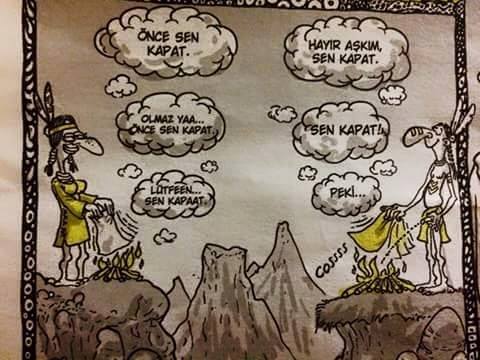 ÖNCE SEN
KAPAT.
HAYIR AŞKIM,
SEN KAPAT.
OLMAZ YAA...
ÖNCE SEN KAPAT.
SEN KAPAT!.
LÜTFEEN...
SEN KAPAAT.
PEKİ...
COSSSS